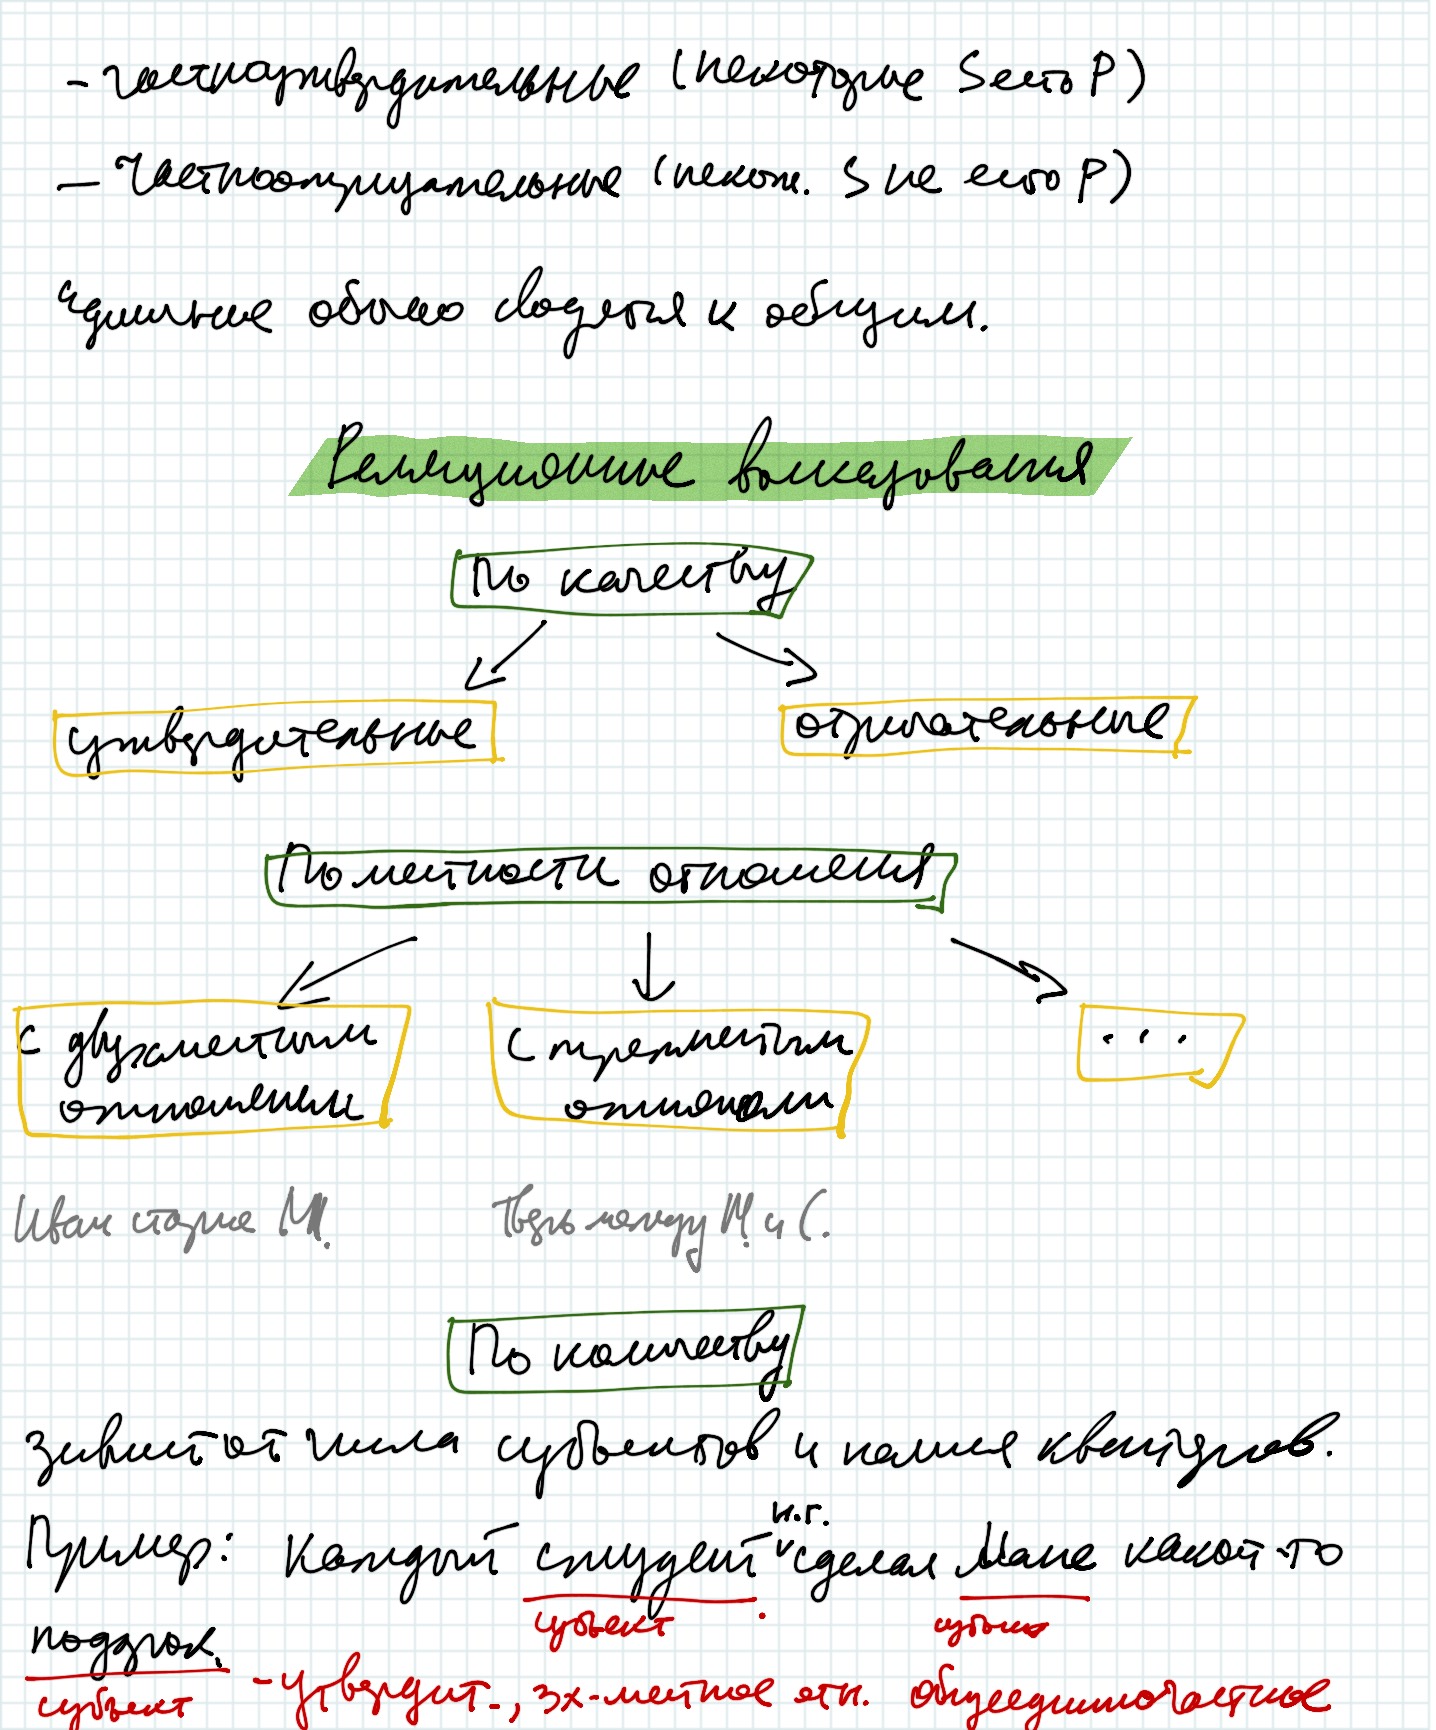 - частноутвердительные (некоторые S есть P)
- Частноотрицательные (некот. S не есть P)
единичные обычно сводятся к общим.
Реляционные высказывания
По качеству
утвердительные отрицательные
По местности отношения
с двухместным с трехместным ...
отношением отношением
Иван старше М. Тверь между М. и С.
По количеству
Зависит от числа субъектов и наличия кванторов.
н.г.
Пример: Каждый студент сделал Мане какой-то
субъект субъект
подарок.
субъект - утвердит., 3х-местное отн. общеединичночастное